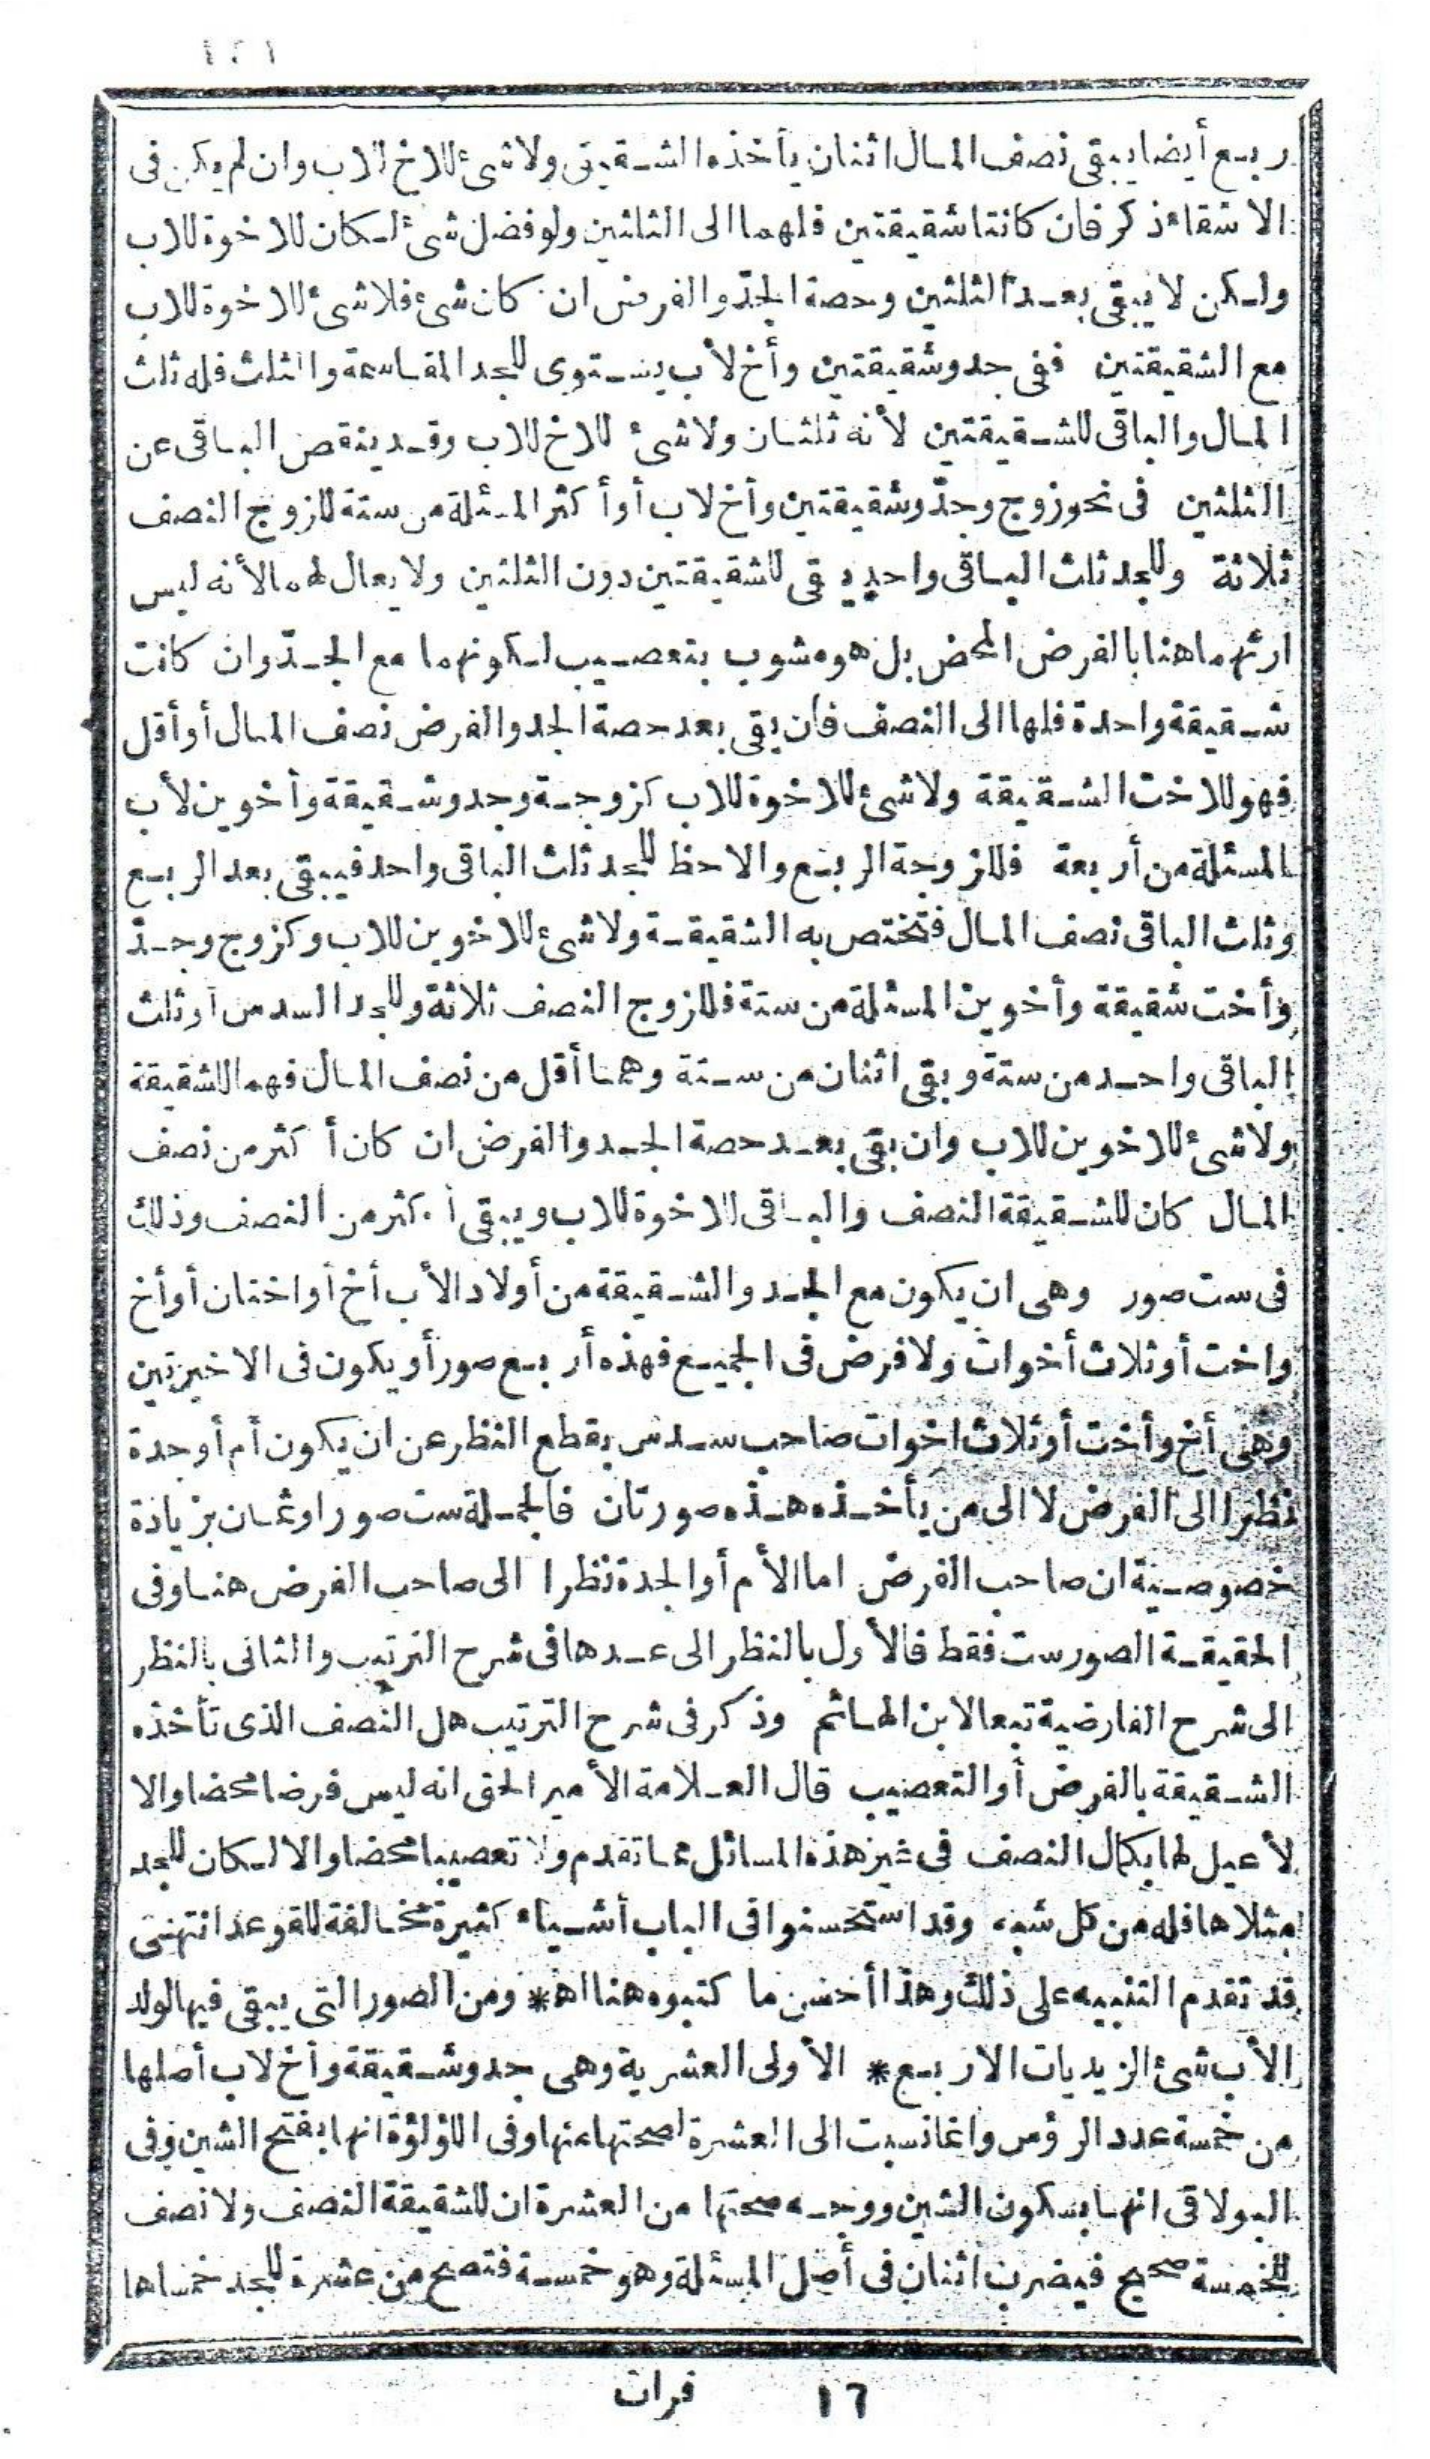 ١٢١
ربع أيضا يبقى نصف المال اثنان يأخذه الشقيق ولا شئ للاخ للاب وان لم يكن فى
الاشقاء ذكر فان كانتا شقيقتين فلهما الى الثلثين ولو فضل شئ لكان للاخوة للاب
ولكن لا يبقى بعد الثلثين وحصة الجدّ والفرض ان كان شئ فلا شئ للاخوة للاب
مع الشقيقتين ففى جد وشقيقتين وأخ لأب يستوى للجد المقاسمة والثلث فله ثلث
المال والباقى للشقيقتين لأنه ثلثان ولا شئ للاخ للاب وقد ينقص الباقى عن
الثلثين فى نحو زوج وجدّ وشقيقتين وأخ لاب أو أكثر المسئلة من ستة للزوج النصف
ثلاثة وللجد ثلث الباقى واحد يبقى للشقيقتين دون الثلثين ولا يعال لهما لأنه ليس
ارثهما هنا بالفرض المحض بل هو مشوب بتعصيب لكونهما مع الجدّ وان كانت
شقيقة واحدة فلها الى النصف فان بقى بعد حصة الجد والفرض نصف المال أو أقل
فهو للاخت الشقيقة ولا شئ للاخوة للاب كزوجة وجد وشقيقة وأخوين لأب
المسئلة من أربعة فللزوجة الربع والاحظ للجد ثلث الباقى واحد فيبقى بعد الربع
وثلث الباقى نصف المال فتختص به الشقيقة ولا شئ للاخوين للاب وكزوج وجدّ
وأخت شقيقة وأخوين المسئلة من ستة فللزوج النصف ثلاثة وللجد السدس أو ثلث
الباقى واحد من ستة وبقى اثنان من ستة وهما أقل من نصف المال فهما للشقيقة
ولا شئ للاخوين للاب وان بقى بعد حصة الجد والفرض ان كان أكثر من نصف
المال كان للشقيقة النصف والباقى للاخوة للاب ويبقى أكثر من النصف وذلك
فى ست صور وهى ان يكون مع الجد والشقيقة من أولاد الأب أخ أو اختان أو أخ
واخت أو ثلاث أخوات ولا فرض فى الجميع فهذه أربع صور أو يكون فى الاخيرتين
وهى أخ وأخت أو ثلاث اخوات صاحب سدس بقطع النظر عن ان يكون أم أو جدة
نظرا الى الفرض لا الى من يأخذه هذه صورتان فالجملة ست صور او ثمان بزيادة
خصوصية ان صاحب الفرض اما الأم أو الجدة نظرا الى صاحب الفرض هنا وفى
الحقيقة الصور ست فقط فالأول بالنظر الى عدها فى شرح الترتيب والثانى بالنظر
الى شرح الفارضية تبعا لابن الهائم وذكر فى شرح الترتيب هل النصف الذى تأخذه
الشقيقة بالفرض أو التعصيب قال العلامة الأمير الحق انه ليس فرضا محضا والا
لأعيل لها بكمال النصف فى غير هذه المسائل مما تقدم ولا تعصيبا محضا والا لكان للجد
مثلاها فله من كل شبه وقد استحسنوا فى الباب أشياء كثيرة مخالفة للقوعد انتهى
قد تقدم التنبيه على ذلك وهذا أحسن ما كتبوه هنا اه * ومن الصور التى يبقى فيها لولد
الأب شئ الزيديات الاربع * الأولى العشرية وهى جد وشقيقة وأخ لاب أصلها
من خمسة عدد الرؤس وانما نسبت الى العشرة لصحتها منها وفى اللؤلؤة انها بفتح الشين وفى
البولاقى انها بسكون الشين ووجه صحتها من العشرة ان للشقيقة النصف ولا نصف
للخمسة صحيح فيضرب اثنان فى أصل المسئلة وهو خمسة فتصح من عشرة للجد خمساها
١٦ فرات